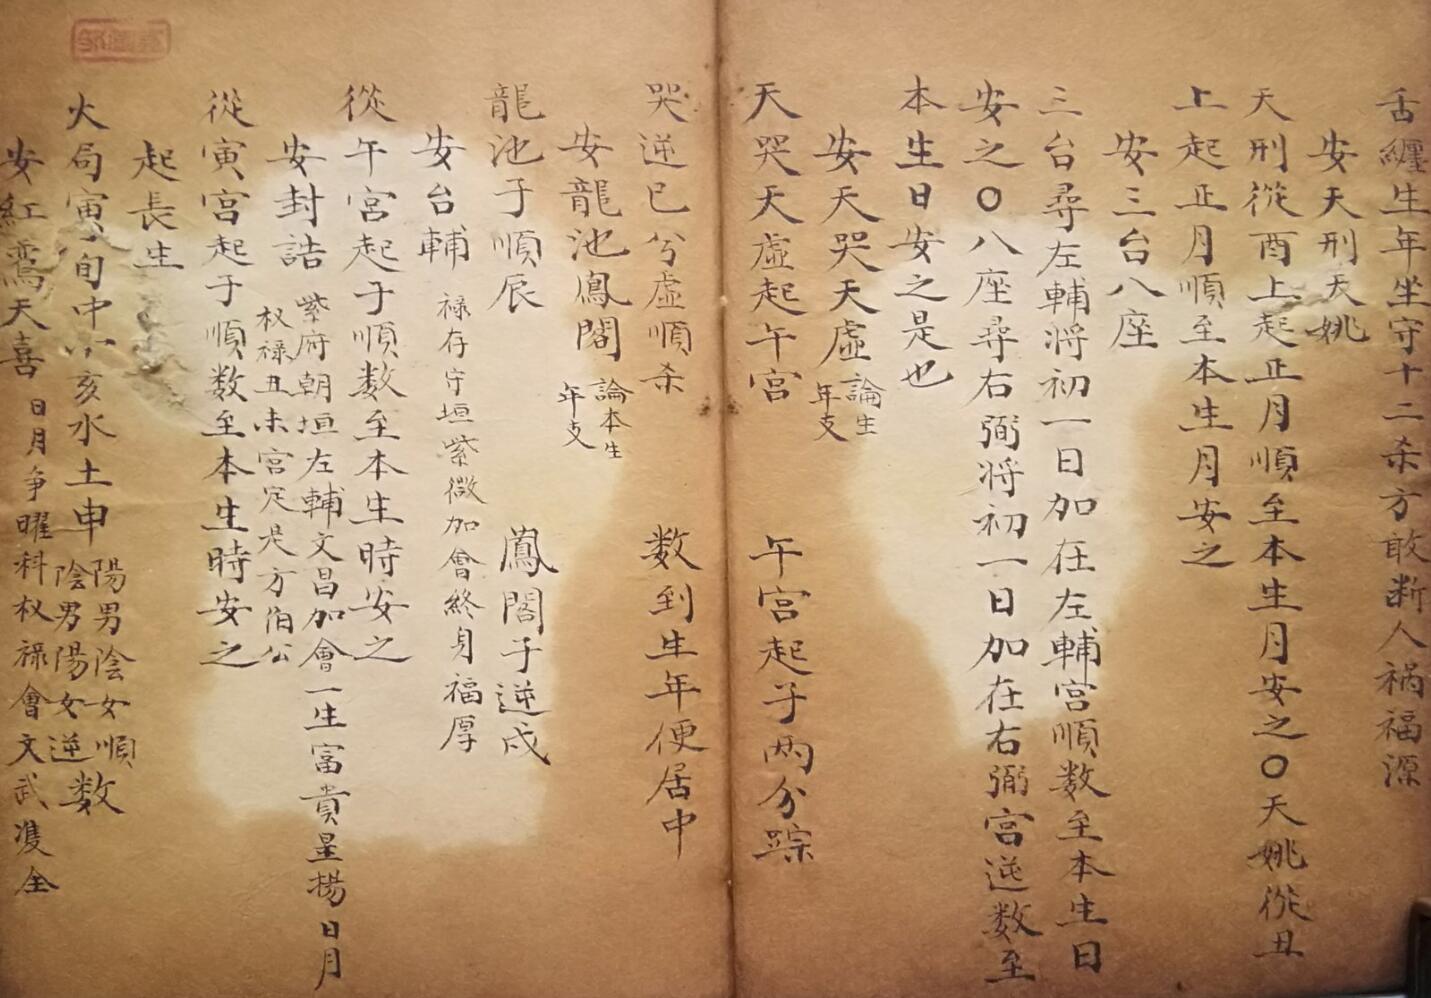 舌纏生年坐守十二杀方敢断人禍福源
安天刑天姚
天刑從酉上起正月順至本生月安之〇天姚從丑
上起正月順至本生月安之
安三台八座
三台尋左輔将初一日加在左輔宮順数至本生日
安之〇八座尋右弼将初一日加在右弼宮逆数至
本生日安之是也
安天哭天虛 論生年支
天哭天虛起午宮 午宮起子兩分踪
哭逆巳兮虛順杀 数到生年便居中
安龍池鳳閣 論本生年支
龍池子順辰 鳳閣子逆戌
安台輔 禄存守垣紫微加會終身福厚
從午宮起子順数至本生時安之
安封誥 紫府朝垣左輔文昌加會一生富貴星揚日月
权禄丑未宮定是方伯公
從寅宮起子順数至本生時安之
起長生
火局寅 中 亥水土申 陽男陰女順 陰男陽女逆数
安紅鸞天喜 日月争曜科权禄會文武𨾏全